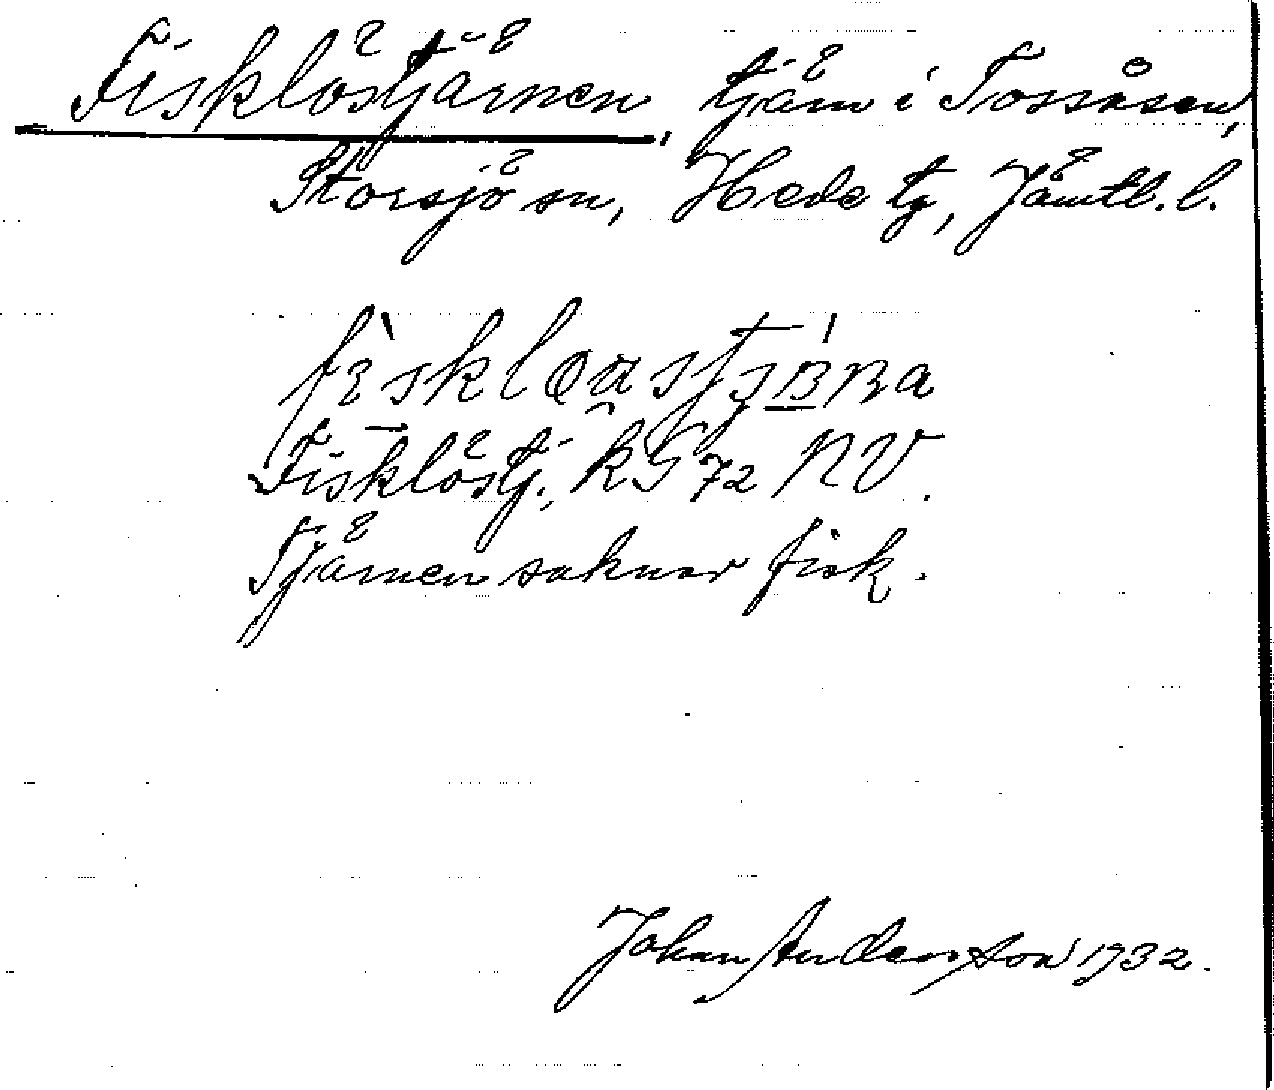 Fisklöstjärnen, tjärn i Tossåsen,
Storsjö sn, Hede tg, Jämtl. l.
Fisklöstj., kG 72 NV.
Tjärnen saknar fisk.
Johan Anderson 1932.